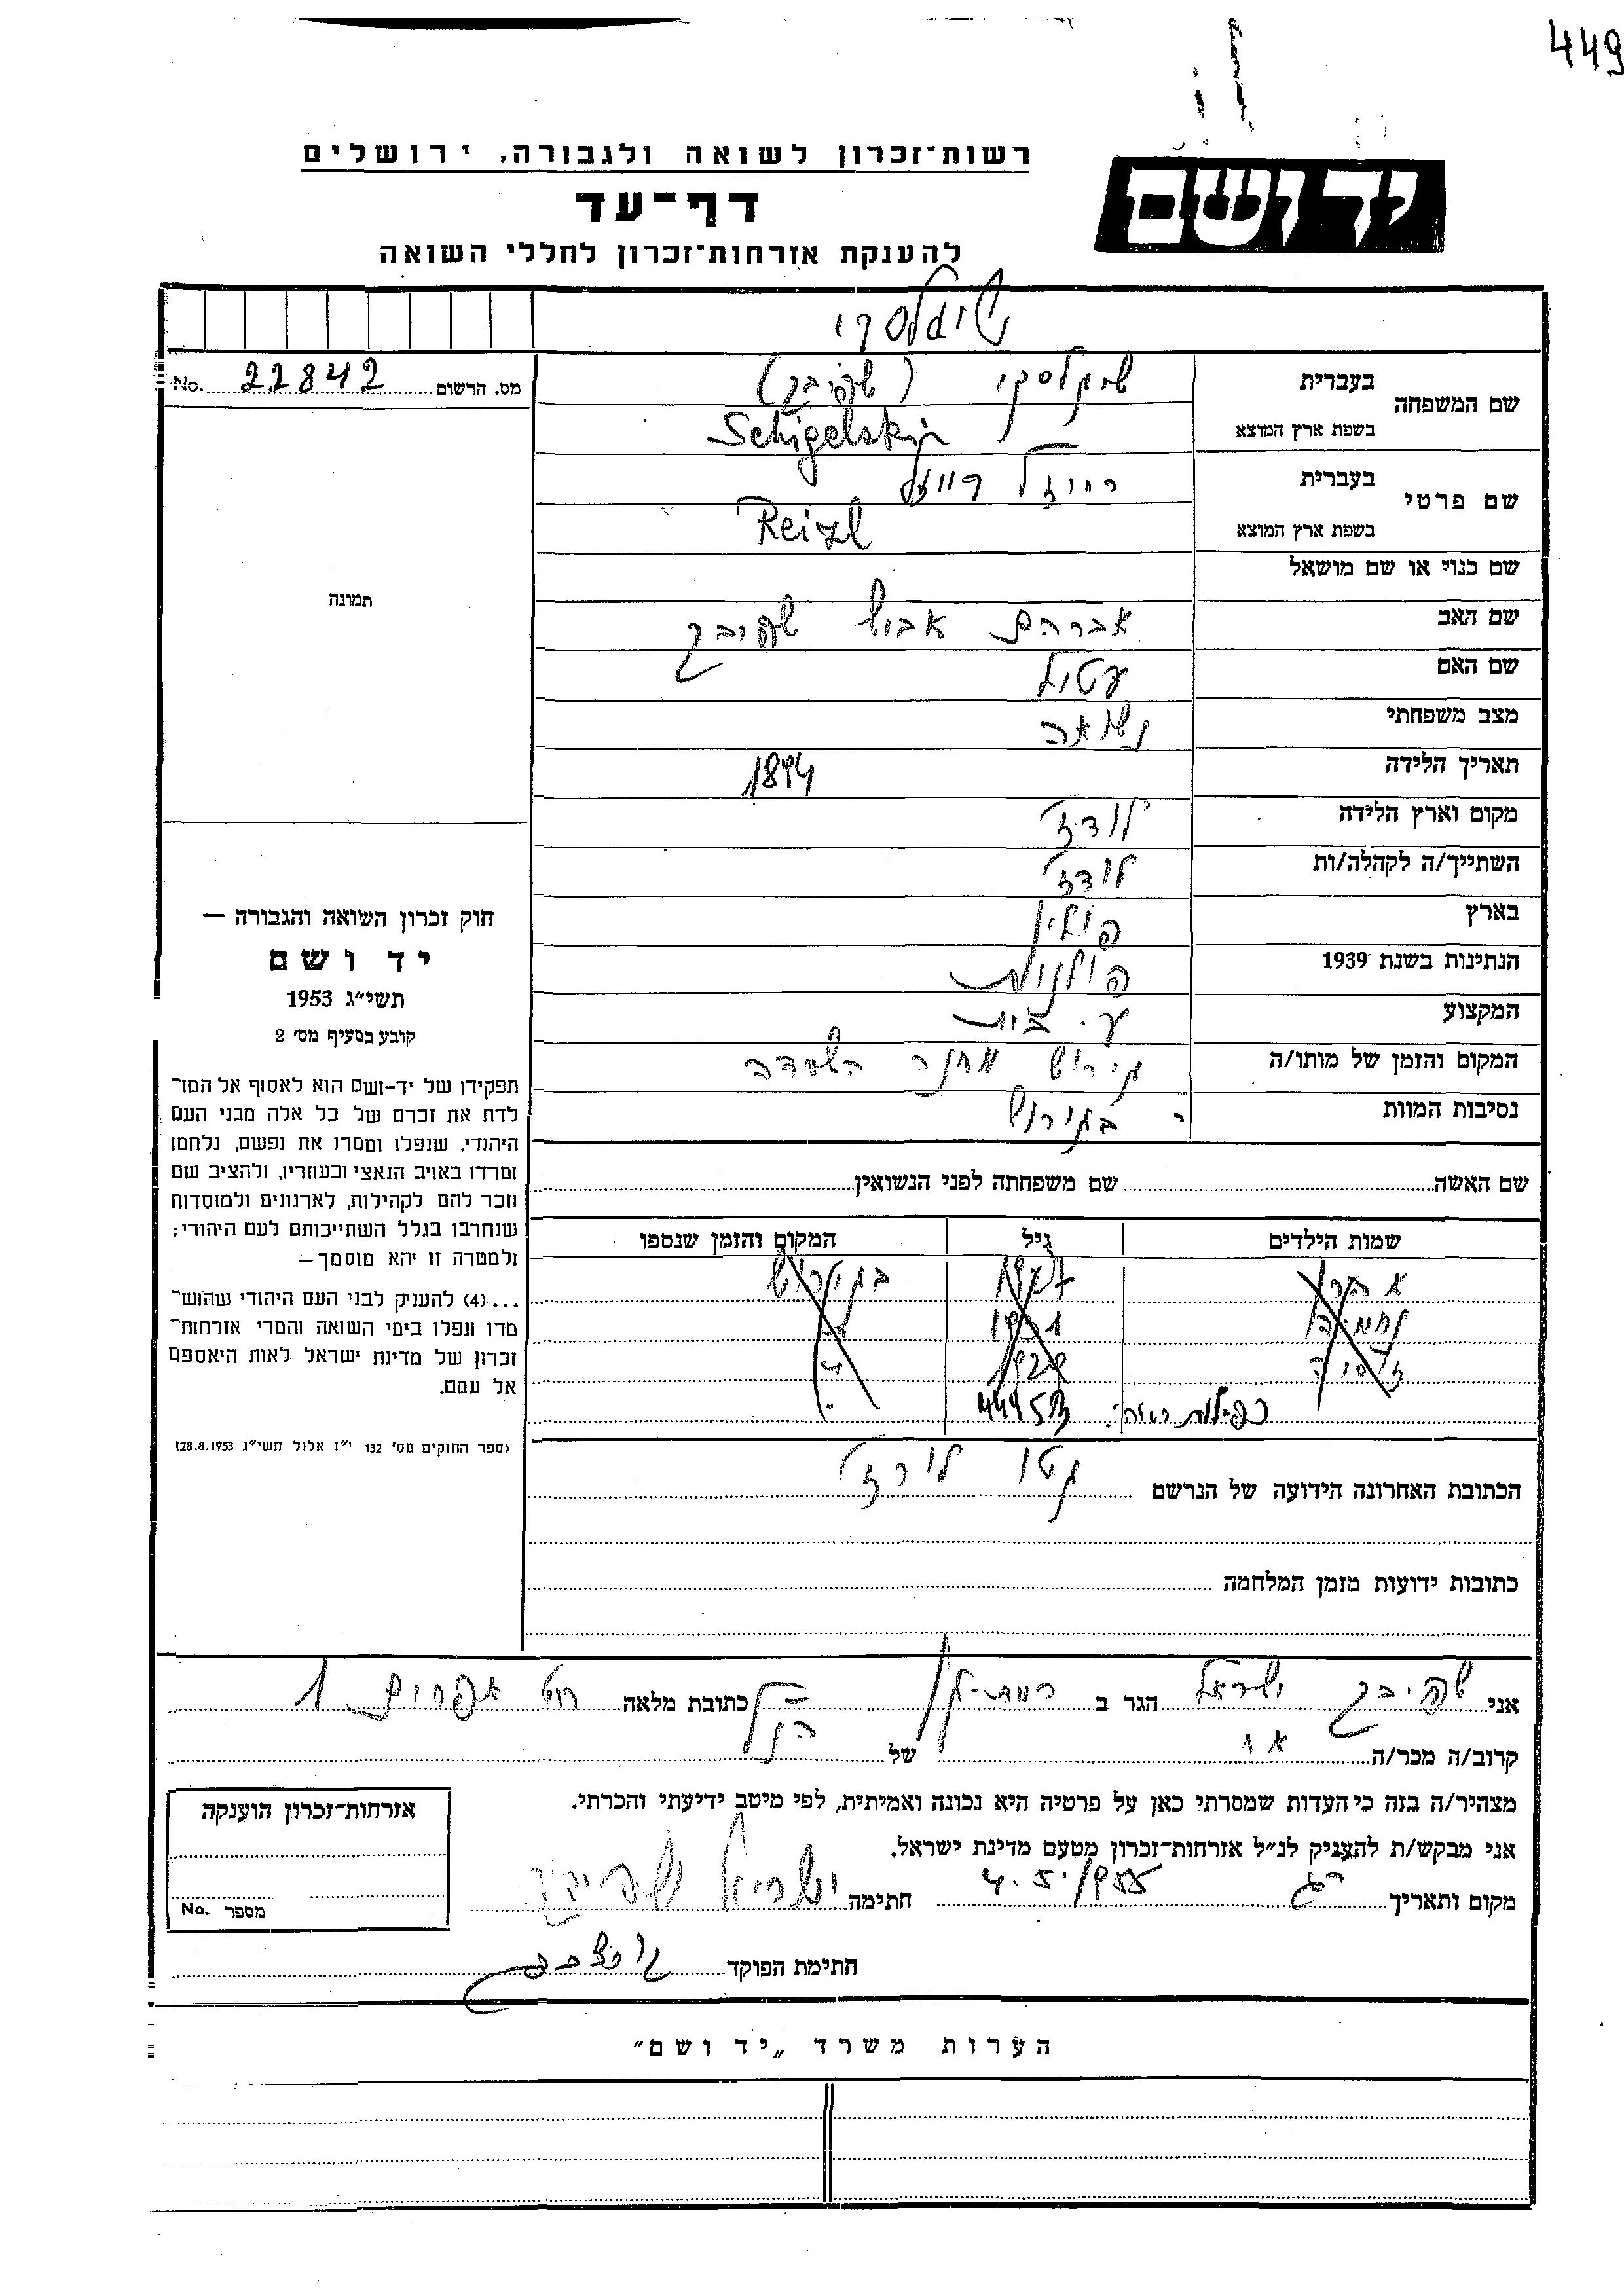 449
יד ושם
רשות־זכרון לשואה ולגבורה, ירושלים
דף־עד
להענקת אזרחות־זכרון לחללי השואה
שיגלסקי
מס. הרשום 22842 No.
שם המשפחה
בעברית שיגלסקי (שפיבק)
בשפת ארץ המוצא Schigelski
שם פרטי
בעברית רייזל
בשפת ארץ המוצא Reizl
שם כנוי או שם מושאל
שם האב אברהם שפיבק
שם האם
מצב משפחתי נשואה
תאריך הלידה 1894
מקום וארץ הלידה לודז'
השתייך/ה לקהלה/ות לודז'
בארץ פולין
הנתינות בשנת 1939 פולנית
המקצוע ע. בית
המקום והזמן של מותו/ה מחנה השמדה
נסיבות המוות
שם האשה שם משפחתה לפני הנשואין
שמות הילדים גיל המקום והזמן שנספו
1931
1929
44953
הכתובת האחרונה הידועה של הנרשם גטו לודז'
כתובות ידועות מזמן המלחמה
תמונה
חוק זכרון השואה והגבורה —
יד ושם
תשי״ג 1953
קובע בסעיף מס׳ 2
תפקידו של יד-ושם הוא לאסוף אל המו־
לדת את זכרם של כל אלה מבני העם
היהודי, שנפלו ומסרו את נפשם, נלחמו
ומרדו באויב הנאצי ובעוזריו, ולהציב שם
וזכר להם לקהילות, לארגונים ולמוסדות
שנחרבו בגלל השתייכותם לעם היהודי;
ולמטרה זו יהא מוסמך —
...(4) להעניק לבני העם היהודי שהוש־
מדו ונפלו בימי השואה והמרי אזרחות־
זכרון של מדינת ישראל לאות היאספם
אל עמם.
(ספר החוקים מס׳ 132 י״ז אלול תשי״ג 28.8.1953)
אני שפיבק ישראל הגר ב רמת-גן כתובת מלאה אפרים 1
קרוב/ה מכר/ה אח של הנ״ל
מצהיר/ה בזה כי העדות שמסרתי כאן על פרטיה היא נכונה ואמיתית, לפי מיטב ידיעתי והכרתי.
אני מבקש/ת להעניק לנ״ל אזרחות־זכרון מטעם מדינת ישראל.
מקום ותאריך רג 4.5.1955 חתימה ישראל שפיבק
חתימת הפוקד
אזרחות־זכרון הוענקה
מספר No.
הערות משרד „יד ושם״